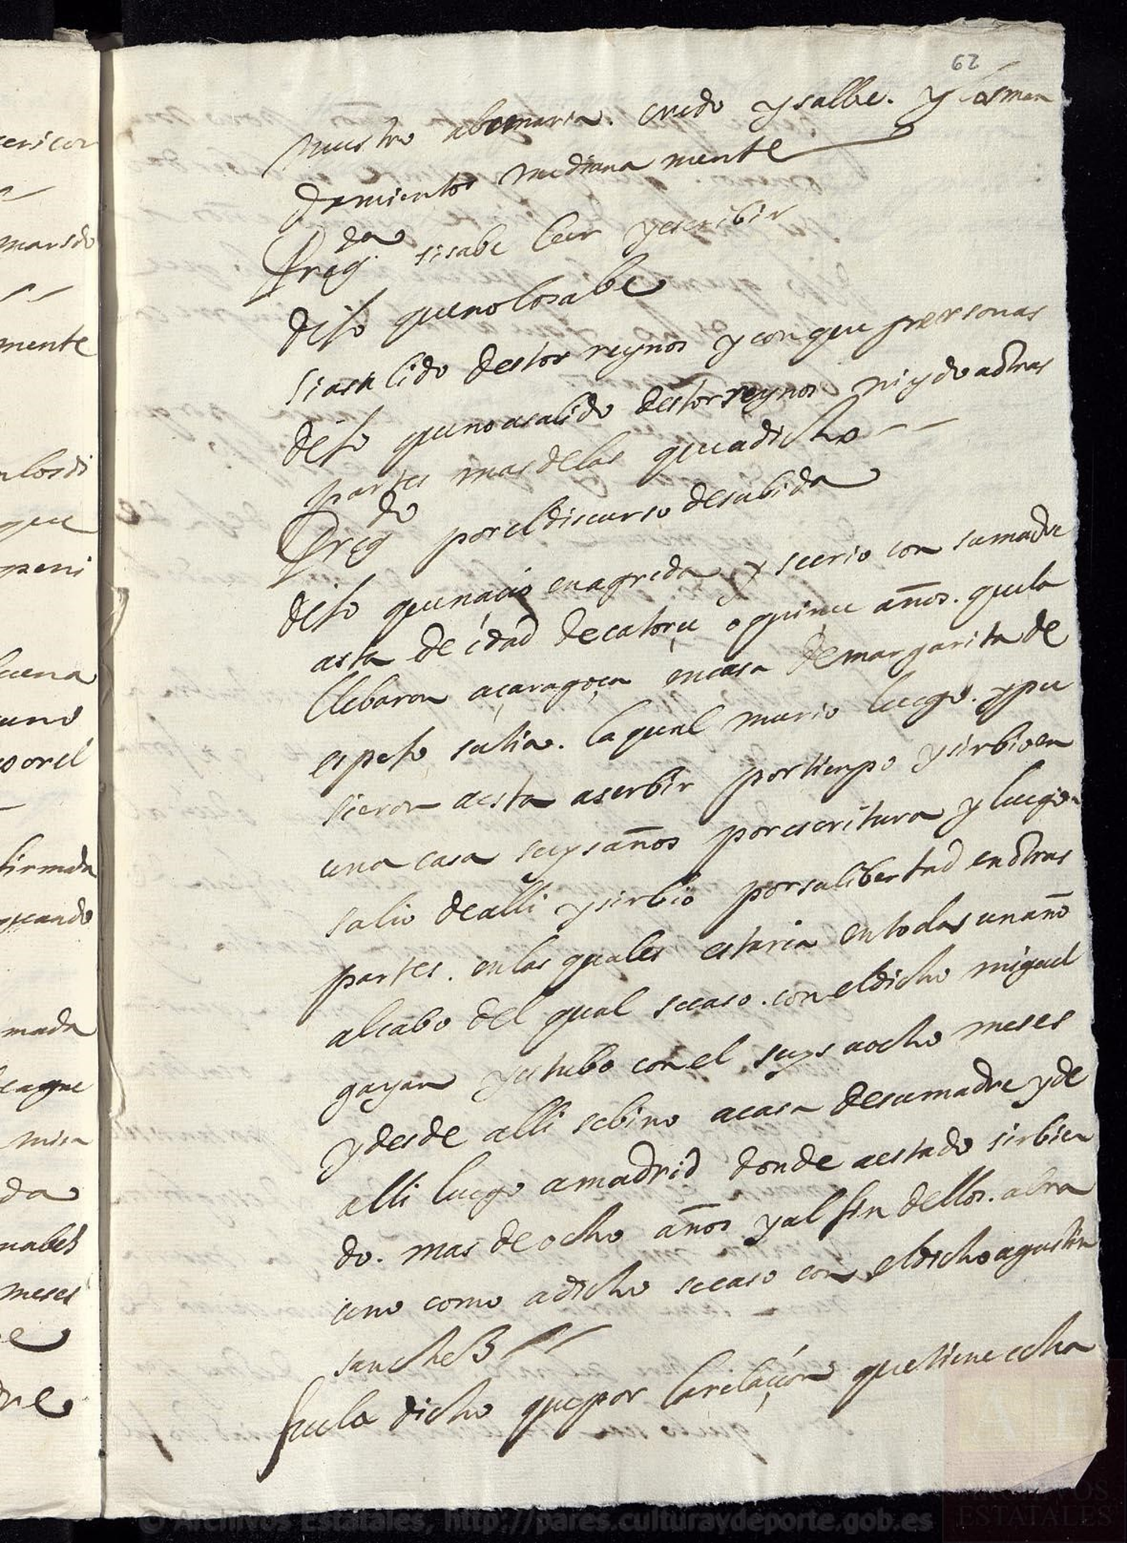 62
nuestro abemaria. credo y salbe. y los man
damientos mediana mente
Preg.da si sabe leer y escribir
dijo que no lo sabe
si a salido destos reynos y con que personas
dijo que no a salido destos reynos ni ydo a otras
partes mas de las que a dicho
Preg.do por el discurso de su bida
dijo que nacio en agreda y se crio con su madre
asta de idad de catorçe o quinçe años. que la
llebaron a çaragoça en casa de margarita de
espejo su tia. la qual murio luego. y pu
sieron a esta a serbir por tienpo y sirbio en
una casa seys años por escritura y luego
salio de alli y sirbio por su libertad en otras
partes. en las quales estaria en todas un año
al cabo del qual se caso. con el dicho miguel
gayan y estubo con el seys a ocho meses
y desde alli se bino a casa de su madre y de
alli luego a madrid donde a estado sirbien
do. mas de ocho años y al fin dellos. abra
uno como a dicho se caso con el dicho agustin
sanchez
fuele dicho que por la relaçion que tiene echa
ericor
mente
que
buena
uno
por el
firmada
quando
mada
misa
da
meses
© Archivos Estatales, http://pares.culturaydeporte.gob.es
AE
ARCHIVOS
ESTATALES